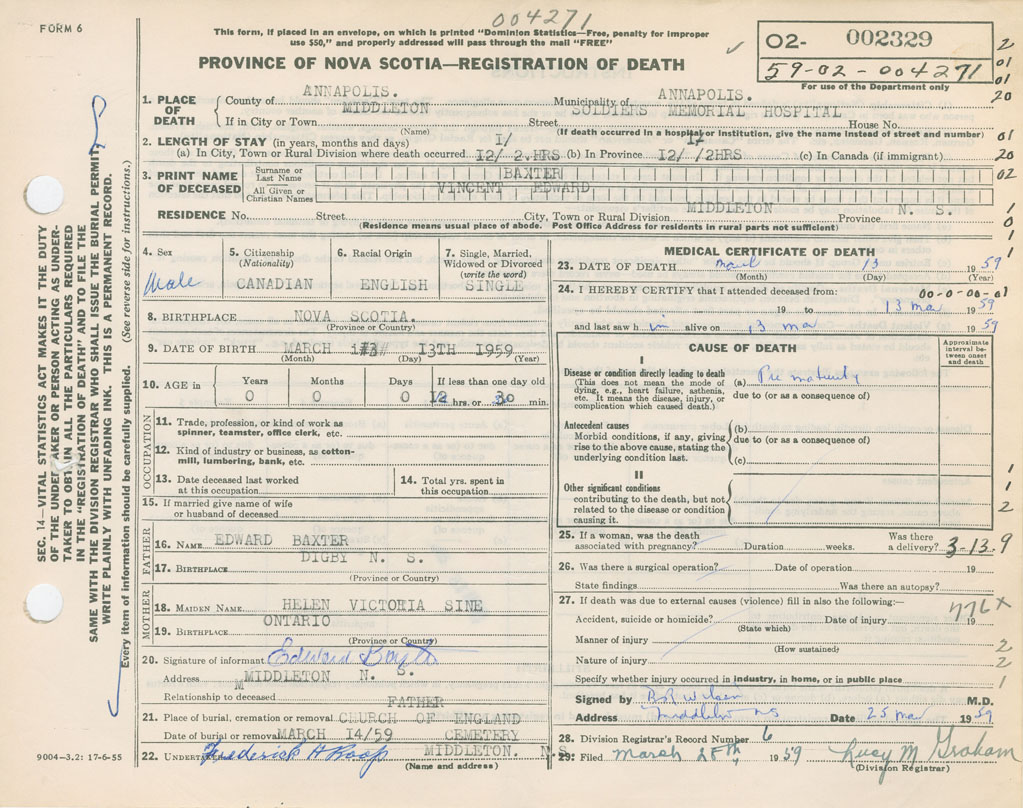 004271
FORM 6
This form, if placed in an envelope, on which is printed "Dominion Statistics—Free, penalty for improper
use $50," and properly addressed will pass through the mail "FREE"
PROVINCE OF NOVA SCOTIA—REGISTRATION OF DEATH
02- 002329
59-02-004271
For use of the Department only
2
01
01
20
01
20
02
1
0
1
1
SEC. 14—VITAL STATISTICS ACT MAKES IT THE DUTY
OF THE UNDERTAKER OR PERSON ACTING AS UNDER-
TAKER TO OBTAIN ALL THE PARTICULARS REQUIRED
IN THE "REGISTRATION OF DEATH" AND TO FILE THE
SAME WITH THE DIVISION REGISTRAR WHO SHALL ISSUE THE BURIAL PERMIT.
WRITE PLAINLY WITH UNFADING INK. THIS IS A PERMANENT RECORD.
Every item of information should be carefully supplied. (See reverse side for instructions.)
1. PLACE OF DEATH
County of ANNAPOLIS. Municipality of ANNAPOLIS.
If in City or Town MIDDLETON Street SOLDIERS MEMORIAL HOSPITAL House No.
(Name) (If death occurred in a hospital or institution, give the name instead of street and number)
2. LENGTH OF STAY (in years, months and days)
(a) In City, Town or Rural Division where death occurred 12/ 2.HRS (b) In Province 12/ /2HRS (c) In Canada (if immigrant)
3. PRINT NAME OF DECEASED
Surname or Last Name BAXTER
All Given or Christian Names VINCENT EDWARD
RESIDENCE No. Street City, Town or Rural Division MIDDLETON Province N. S.
(Residence means usual place of abode. Post Office Address for residents in rural parts not sufficient)
4. Sex Male
5. Citizenship (Nationality) CANADIAN
6. Racial Origin ENGLISH
7. Single, Married, Widowed or Divorced (write the word) SINGLE
8. BIRTHPLACE NOVA SCOTIA.
(Province or Country)
9. DATE OF BIRTH MARCH 13TH 1959
(Month) (Day) (Year)
10. AGE in Years Months Days If less than one day old
0 0 0 12 hrs. or 30 min.
OCCUPATION
11. Trade, profession, or kind of work as
spinner, teamster, office clerk, etc.
12. Kind of industry or business, as cotton-
mill, lumbering, bank, etc.
13. Date deceased last worked
at this occupation
14. Total yrs. spent in
this occupation
15. If married give name of wife
or husband of deceased
FATHER
16. NAME EDWARD BAXTER
17. BIRTHPLACE DIGBY N. S.
(Province or Country)
MOTHER
18. MAIDEN NAME HELEN VICTORIA SINE
19. BIRTHPLACE ONTARIO
(Province or Country)
20. Signature of informant Edward Baxter
Address MIDDLETON N. S.
Relationship to deceased FATHER
21. Place of burial, cremation or removal CHURCH OF ENGLAND
Date of burial or removal MARCH 14/59 CEMETERY
22. UNDERTAKER Frederick A Roop MIDDLETON. N.S.
(Name and address)
9004-3.2: 17-6-55
MEDICAL CERTIFICATE OF DEATH
23. DATE OF DEATH March 13 1959
(Month) (Day) (Year)
24. I HEREBY CERTIFY that I attended deceased from: 00-0-00-01
19 to 13 Mar 1959
and last saw him alive on 13 Mar 1959
CAUSE OF DEATH
Approximate interval between onset and death
I
Disease or condition directly leading to death
(This does not mean the mode of
dying, e.g., heart failure, asthenia,
etc. It means the disease, injury, or
complication which caused death.)
(a) Prematurity
due to (or as a consequence of)
Antecedent causes
Morbid conditions, if any, giving
rise to the above cause, stating the
underlying condition last.
(b)
due to (or as a consequence of)
(c)
II
Other significant conditions
contributing to the death, but not
related to the disease or condition
causing it.
1
1
2
25. If a woman, was the death
associated with pregnancy? Duration weeks. Was there
a delivery? 3-13-9
26. Was there a surgical operation? Date of operation 19
State findings Was there an autopsy?
27. If death was due to external causes (violence) fill in also the following:—
776X
Accident, suicide or homicide? Date of injury 19
(State which)
Manner of injury 2
(How sustained)
Nature of injury 2
Specify whether injury occurred in industry, in home, or in public place 1
Signed by M.D.
Address Middleton NS Date 25 Mar 1959
28. Division Registrar's Record Number 6
29. Filed March 28th, 1959 Lucy M Graham
(Division Registrar)